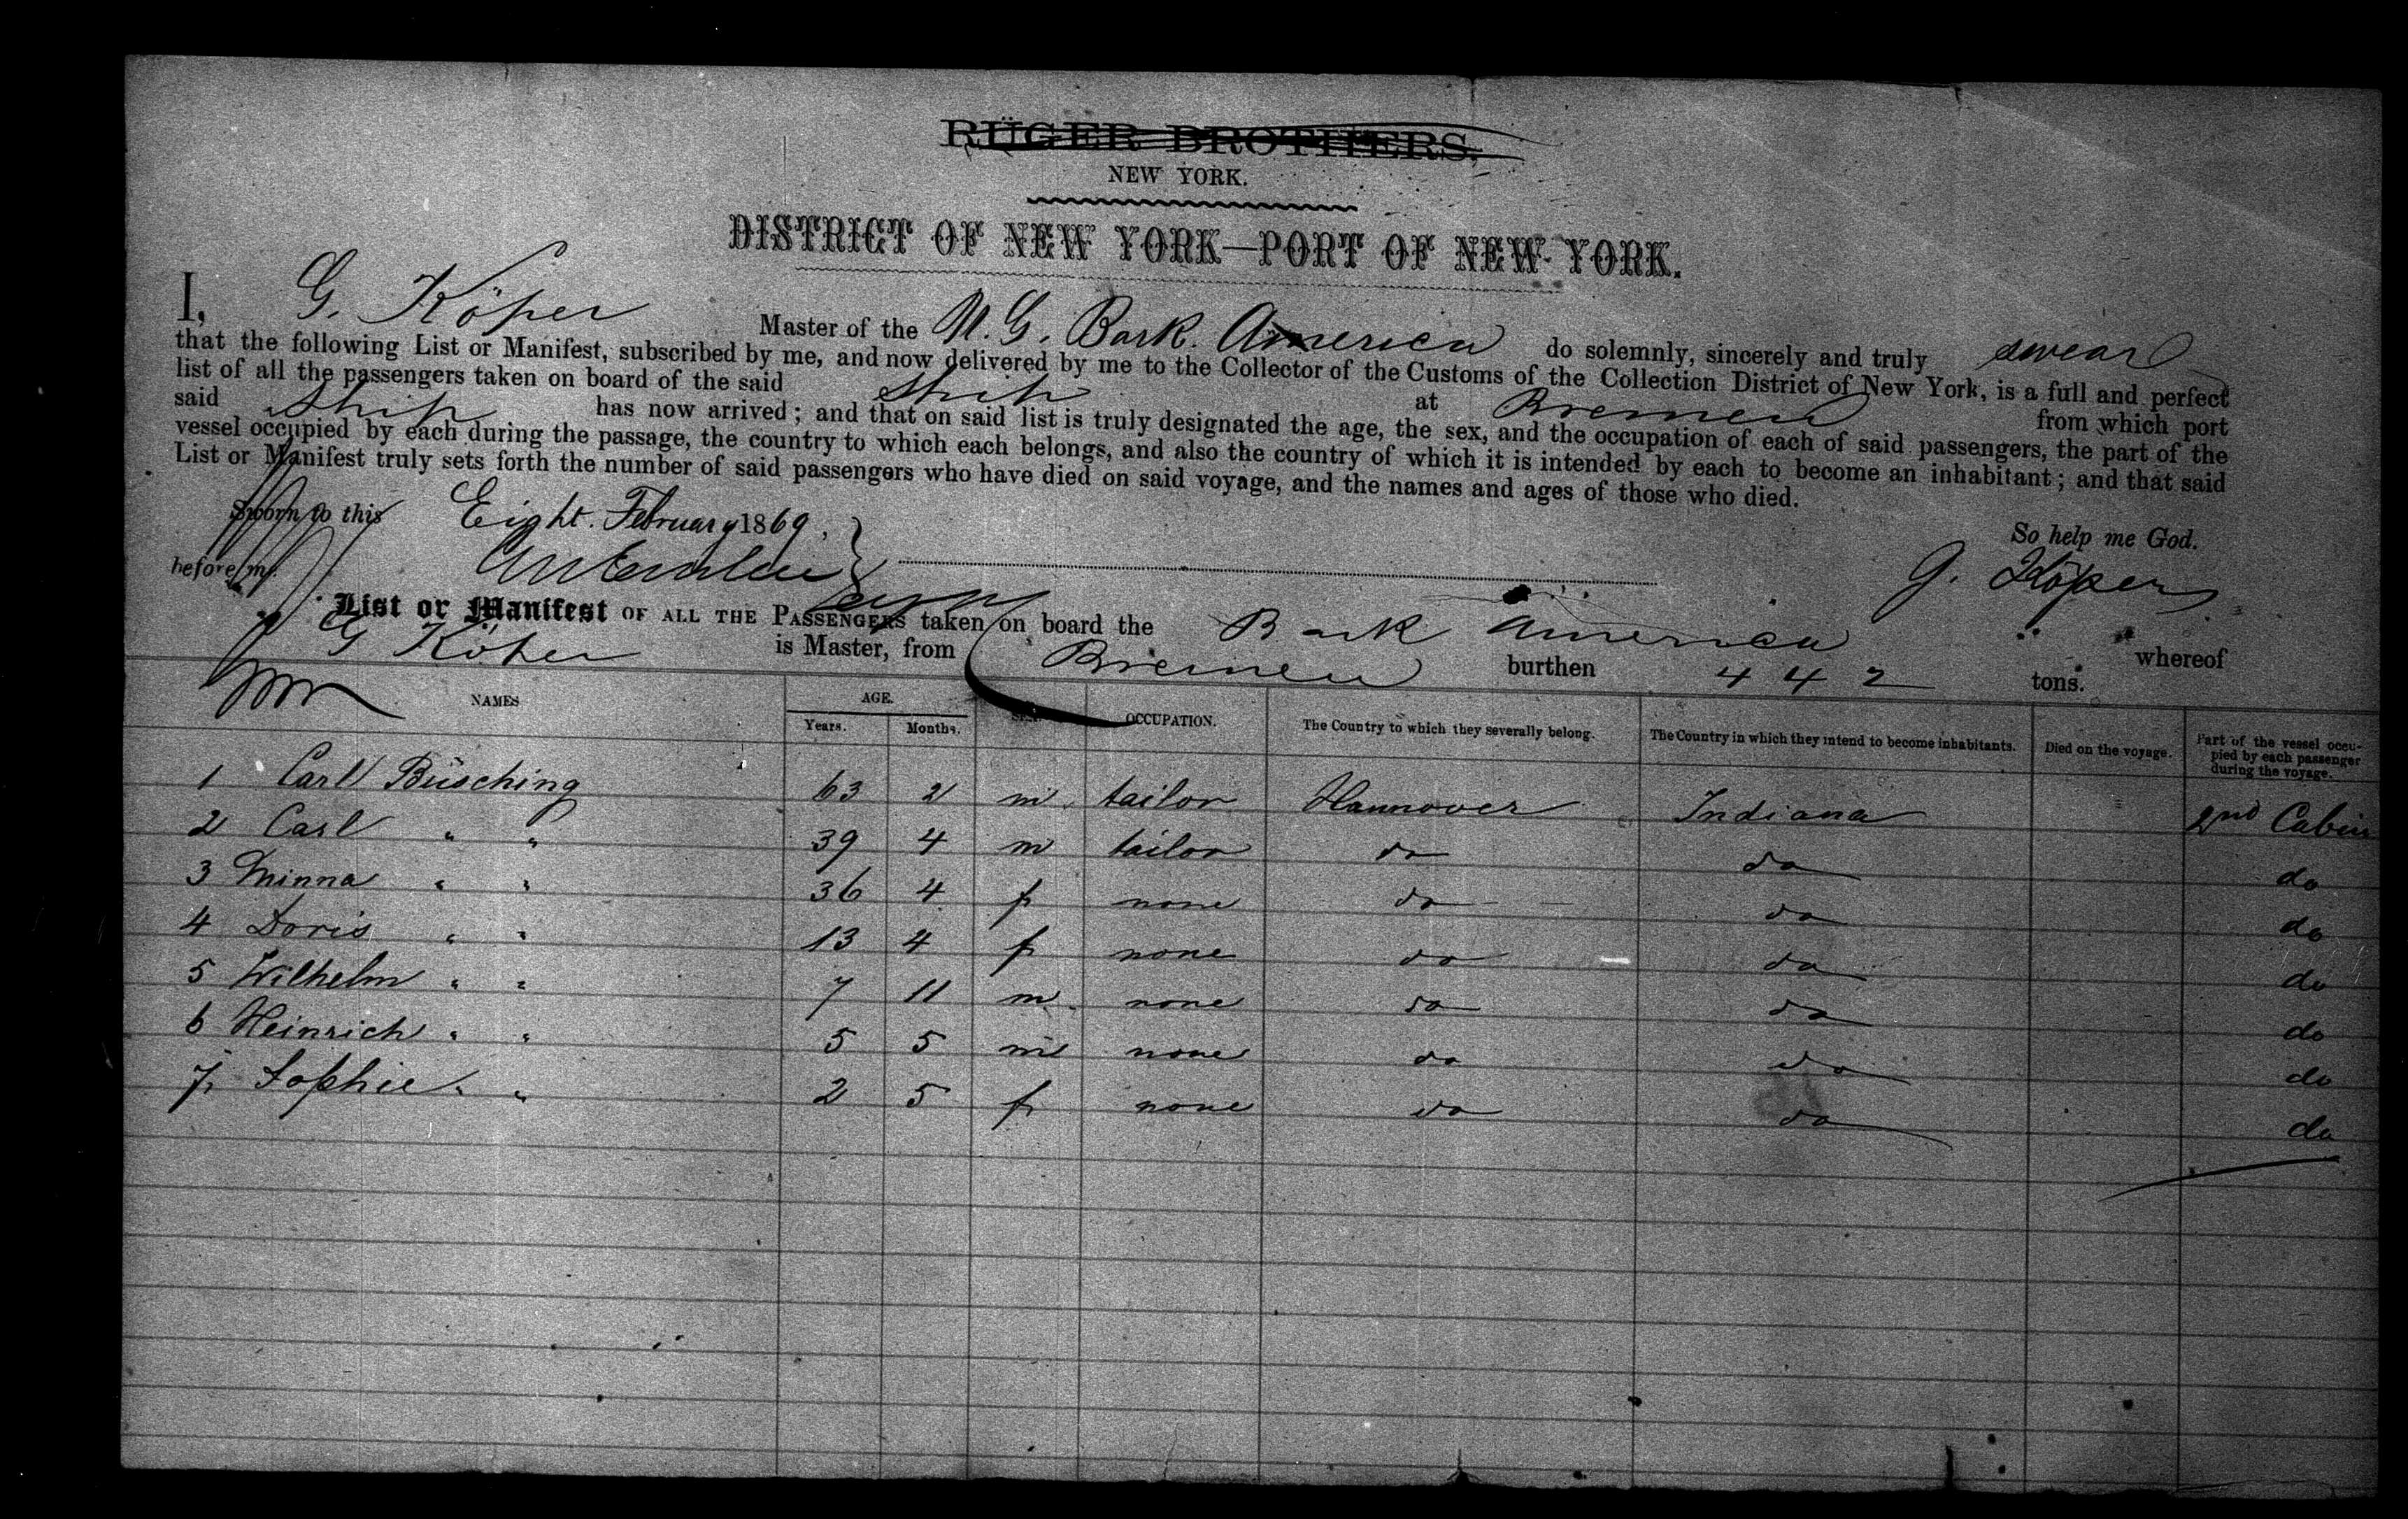 RÜGER BROTHERS.
NEW YORK.
DISTRICT OF NEW YORK—PORT OF NEW YORK.
I, G. Köper Master of the N. G. Bark. America do solemnly, sincerely and truly swear
that the following List or Manifest, subscribed by me, and now delivered by me to the Collector of the Customs of the Collection District of New York, is a full and perfect
list of all the passengers taken on board of the said Ship at Bremen from which port
said Ship has now arrived; and that on said list is truly designated the age, the sex, and the occupation of each of said passengers, the part of the
vessel occupied by each during the passage, the country to which each belongs, and also the country of which it is intended by each to become an inhabitant; and that said
List or Manifest truly sets forth the number of said passengers who have died on said voyage, and the names and ages of those who died.
Sworn to this Eight. February 1869. So help me God.
before me. G. Köper
List or Manifest OF ALL THE PASSENGERS taken on board the Bark America whereof
G Köper is Master, from Bremen burthen 442 tons.
NAMES AGE. SEX. OCCUPATION. The Country to which they severally belong. The Country in which they intend to become inhabitants. Died on the voyage. Part of the vessel occu-
Years. Months. pied by each passenger
during the voyage.
1 Carl Büsching 63 2 m. tailor Hannover Indiana 2nd Cabin
2 Carl " " 39 4 m tailor do do do
3 Minna " " 36 4 f none do do do
4 Doris " " 13 4 f none do do do
5 Wilhelm " " 7 11 m. none do do do
6 Heinrich " " 5 5 m none do do do
7. Sophie " " 2 5 f none do do do